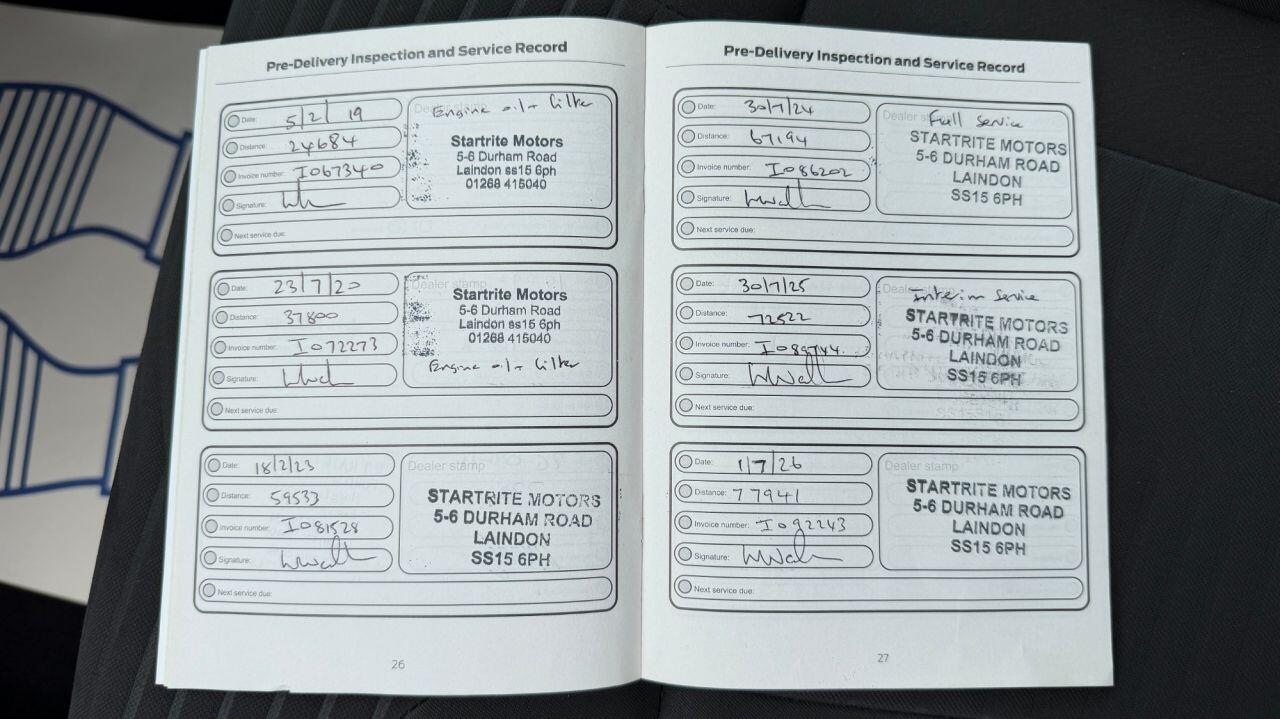 Pre-Delivery Inspection and Service Record
Date: 5/2/19
Distance: 24684
Invoice number: I067340
Signature:
Next service due:
Dealer stamp
Engine oil + filter
Startrite Motors
5-6 Durham Road
Laindon ss15 6ph
01268 415040
Date: 23/7/20
Distance: 37800
Invoice number: I072273
Signature:
Next service due:
Dealer stamp
Startrite Motors
5-6 Durham Road
Laindon ss15 6ph
01268 415040
Engine oil + filter
Date: 18/2/23
Distance: 59533
Invoice number: I081528
Signature:
Next service due:
Dealer stamp
STARTRITE MOTORS
5-6 DURHAM ROAD
LAINDON
SS15 6PH
26
Pre-Delivery Inspection and Service Record
Date: 30/7/24
Distance: 67194
Invoice number: I086202
Signature:
Next service due:
Dealer stamp
Full Service
STARTRITE MOTORS
5-6 DURHAM ROAD
LAINDON
SS15 6PH
Date: 30/7/25
Distance: 72522
Invoice number:
Signature:
Next service due:
Dealer stamp
Interim Service
STARTRITE MOTORS
5-6 DURHAM ROAD
LAINDON
SS15 6PH
Date: 1/7/26
Distance: 77941
Invoice number: I092243
Signature:
Next service due:
Dealer stamp
STARTRITE MOTORS
5-6 DURHAM ROAD
LAINDON
SS15 6PH
27